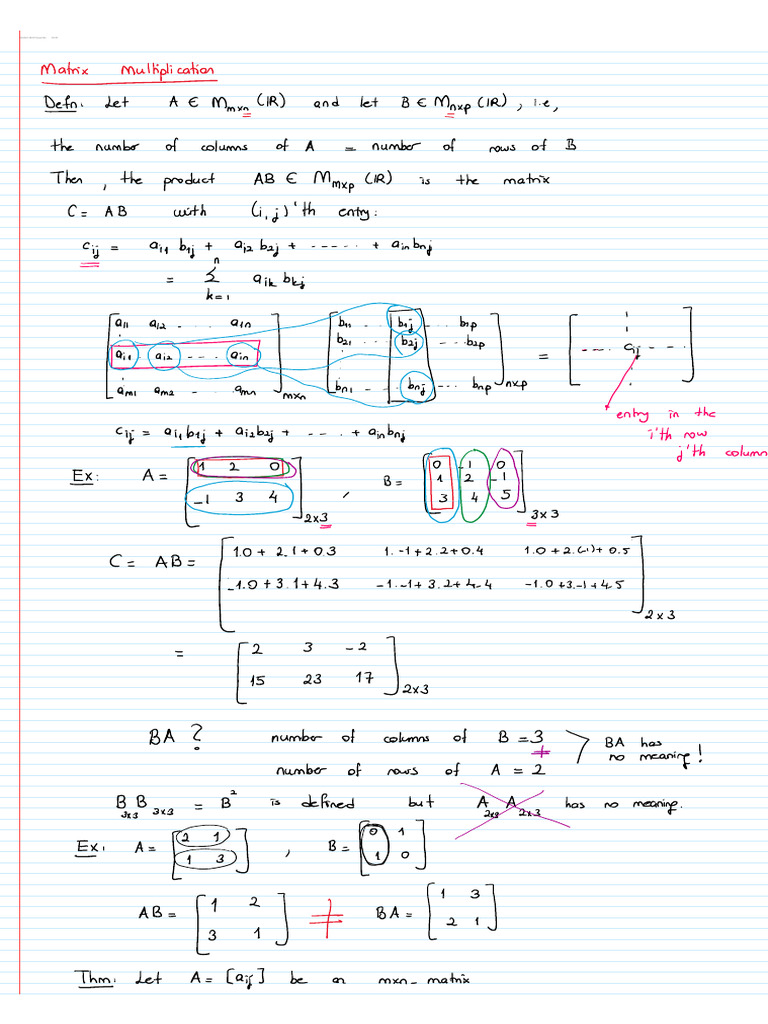 Matrix Multiplication
Defn: Let A ∈ M_mxn (IR) and let B ∈ M_nxp (IR), i.e,
the number of columns of A = number of rows of B
Then, the product AB ∈ M_mxp (IR) is the matrix
C = AB with (i,j)'th entry:
c_ij = a_i1 b_1j + a_i2 b_2j + ----- + a_in b_nj
= Σ_{k=1}^{n} a_ik b_kj
[a_11 a_12 . .... a_1n / a_i1 a_i2 .... a_in / a_m1 a_m2 .... a_mn]_mxn [b_11 .... b_1j .... b_1p / b_21 .... b_2j .... b_2p / b_n1 .... b_nj .... b_np]_nxp = [---- c_ij ----]
entry in the
i'th row
j'th column
c_ij = a_i1 b_1j + a_i2 b_2j + ---- + a_in b_nj
Ex: A = [1 2 0 / -1 3 4]_2x3 , B = [0 -1 0 / 1 2 -1 / 3 4 5]_3x3
C = AB = [1.0 + 2.1 + 0.3 1.-1 + 2.2 + 0.4 1.0 + 2.(-1) + 0.5
-1.0 + 3.1 + 4.3 -1.-1 + 3.2 + 4.4 -1.0 + 3.-1 + 4.5]_2x3
= [2 3 -2
15 23 17]_2x3
BA ? number of columns of B = 3 ≠ BA has
no meaning!
number of rows of A = 2
B_3x3 B_3x3 = B^2 is defined but A_2x3 A_2x3 has no meaning.
Ex: A = [2 1 / 1 3] , B = [0 1 / 1 0]
AB = [1 2 / 3 1] ≠ BA = [1 3 / 2 1]
Thm: Let A = [a_ij] be an mxn-matrix